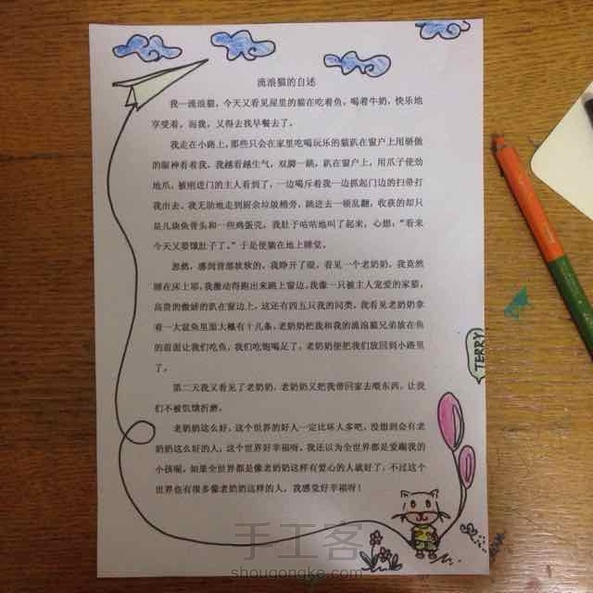 流浪猫的自述
我一流浪猫，今天又看见屋里的猫在吃着鱼，喝着牛奶，快乐地
享受着。而我，又得去找早餐去了。
我走在小路上，那些只会在家里吃喝玩乐的猫趴在窗户上用骄傲
的眼神看着我，我越看越生气，双脚一跳，趴在窗户上，用爪子使劲
地爪，被刚进门的主人看到了，一边喝斥着我一边抓起门边的扫帚打
我出去。我无助地走到厨余垃圾桶旁，跳进去一顿乱翻，收获的却只
是几块鱼骨头和一些鸡蛋壳，我肚子咕咕地叫了起来，心想：“看来
今天又要饿肚子了。”于是便躺在地上睡觉。
忽然，感到背部软软的，我睁开了眼，看见一个老奶奶，我竟然
睡在床上耶，我激动得跑出来跳上窗边，我像一只被主人宠爱的家猫，
高贵的傲娇的趴在窗边上，这还有四五只我的同类，我看见老奶奶拿
着一大盆鱼里面大概有十几条，老奶奶把我和我的流浪猫兄弟放在鱼
的前面让我们吃鱼，我们吃饱喝足了，老奶奶便把我们放回到小路里
了。
第二天我又看见了老奶奶，老奶奶又把我带回家去喂东西，让我
们不被饥饿折磨。
老奶奶这么好，这个世界的好人一定比坏人多吧，没想到会有老
奶奶这么好的人，这个世界好幸福呀，我还以为全世界都是爱踢我的
小孩呢，如果全世界都是像老奶奶这样有爱心的人就好了，不过这个
世界也有很多像老奶奶这样的人，我感觉好幸福呀！
TERRY
手工客
shougongke.com